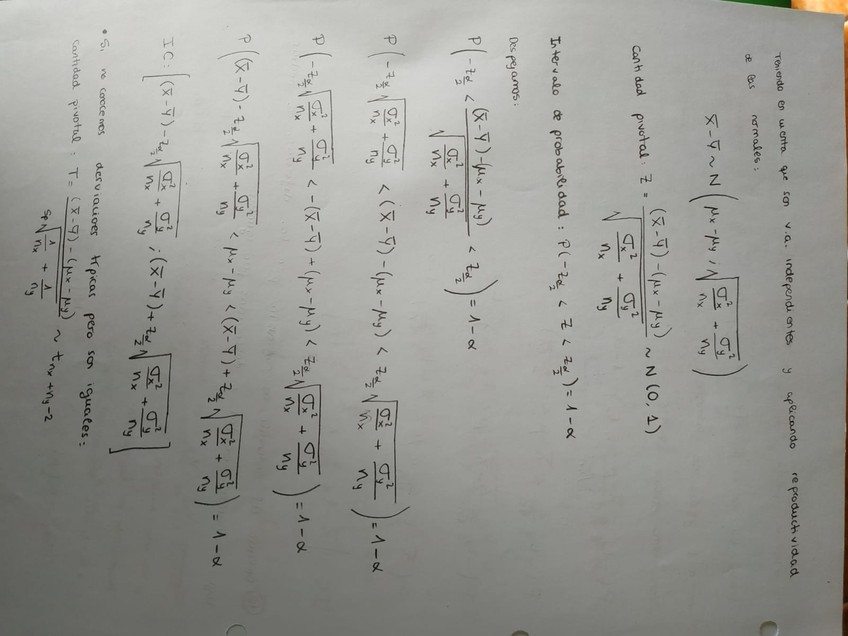 Teniendo en cuenta que son v.a. independientes y aplicando reproductividad
de las normales:
X̄ - Ȳ ~ N(μx - μy, √(σx²/nx + σy²/ny))
Cantidad pivotal: Z = ((X̄ - Ȳ) - (μx - μy)) / √(σx²/nx + σy²/ny) ~ N(0,1)
Intervalo de probabilidad: P(-zα/2 < Z < zα/2) = 1-α
Despejamos:
P(-zα/2 < ((X̄ - Ȳ) - (μx - μy)) / √(σx²/nx + σy²/ny) < zα/2) = 1-α
P(-zα/2 √(σx²/nx + σy²/ny) < (X̄ - Ȳ) - (μx - μy) < zα/2 √(σx²/nx + σy²/ny)) = 1-α
P(-zα/2 √(σx²/nx + σy²/ny) < -(X̄ - Ȳ) + (μx - μy) < zα/2 √(σx²/nx + σy²/ny)) = 1-α
P((X̄ - Ȳ) - zα/2 √(σx²/nx + σy²/ny) < μx - μy < (X̄ - Ȳ) + zα/2 √(σx²/nx + σy²/ny)) = 1-α
IC: [(X̄ - Ȳ) - zα/2 √(σx²/nx + σy²/ny) ; (X̄ - Ȳ) + zα/2 √(σx²/nx + σy²/ny)]
• Si no conocemos desviaciones típicas pero son iguales:
Cantidad pivotal: T = ((X̄ - Ȳ) - (μx - μy)) / (Sp √(1/nx + 1/ny)) ~ t nx+ny-2